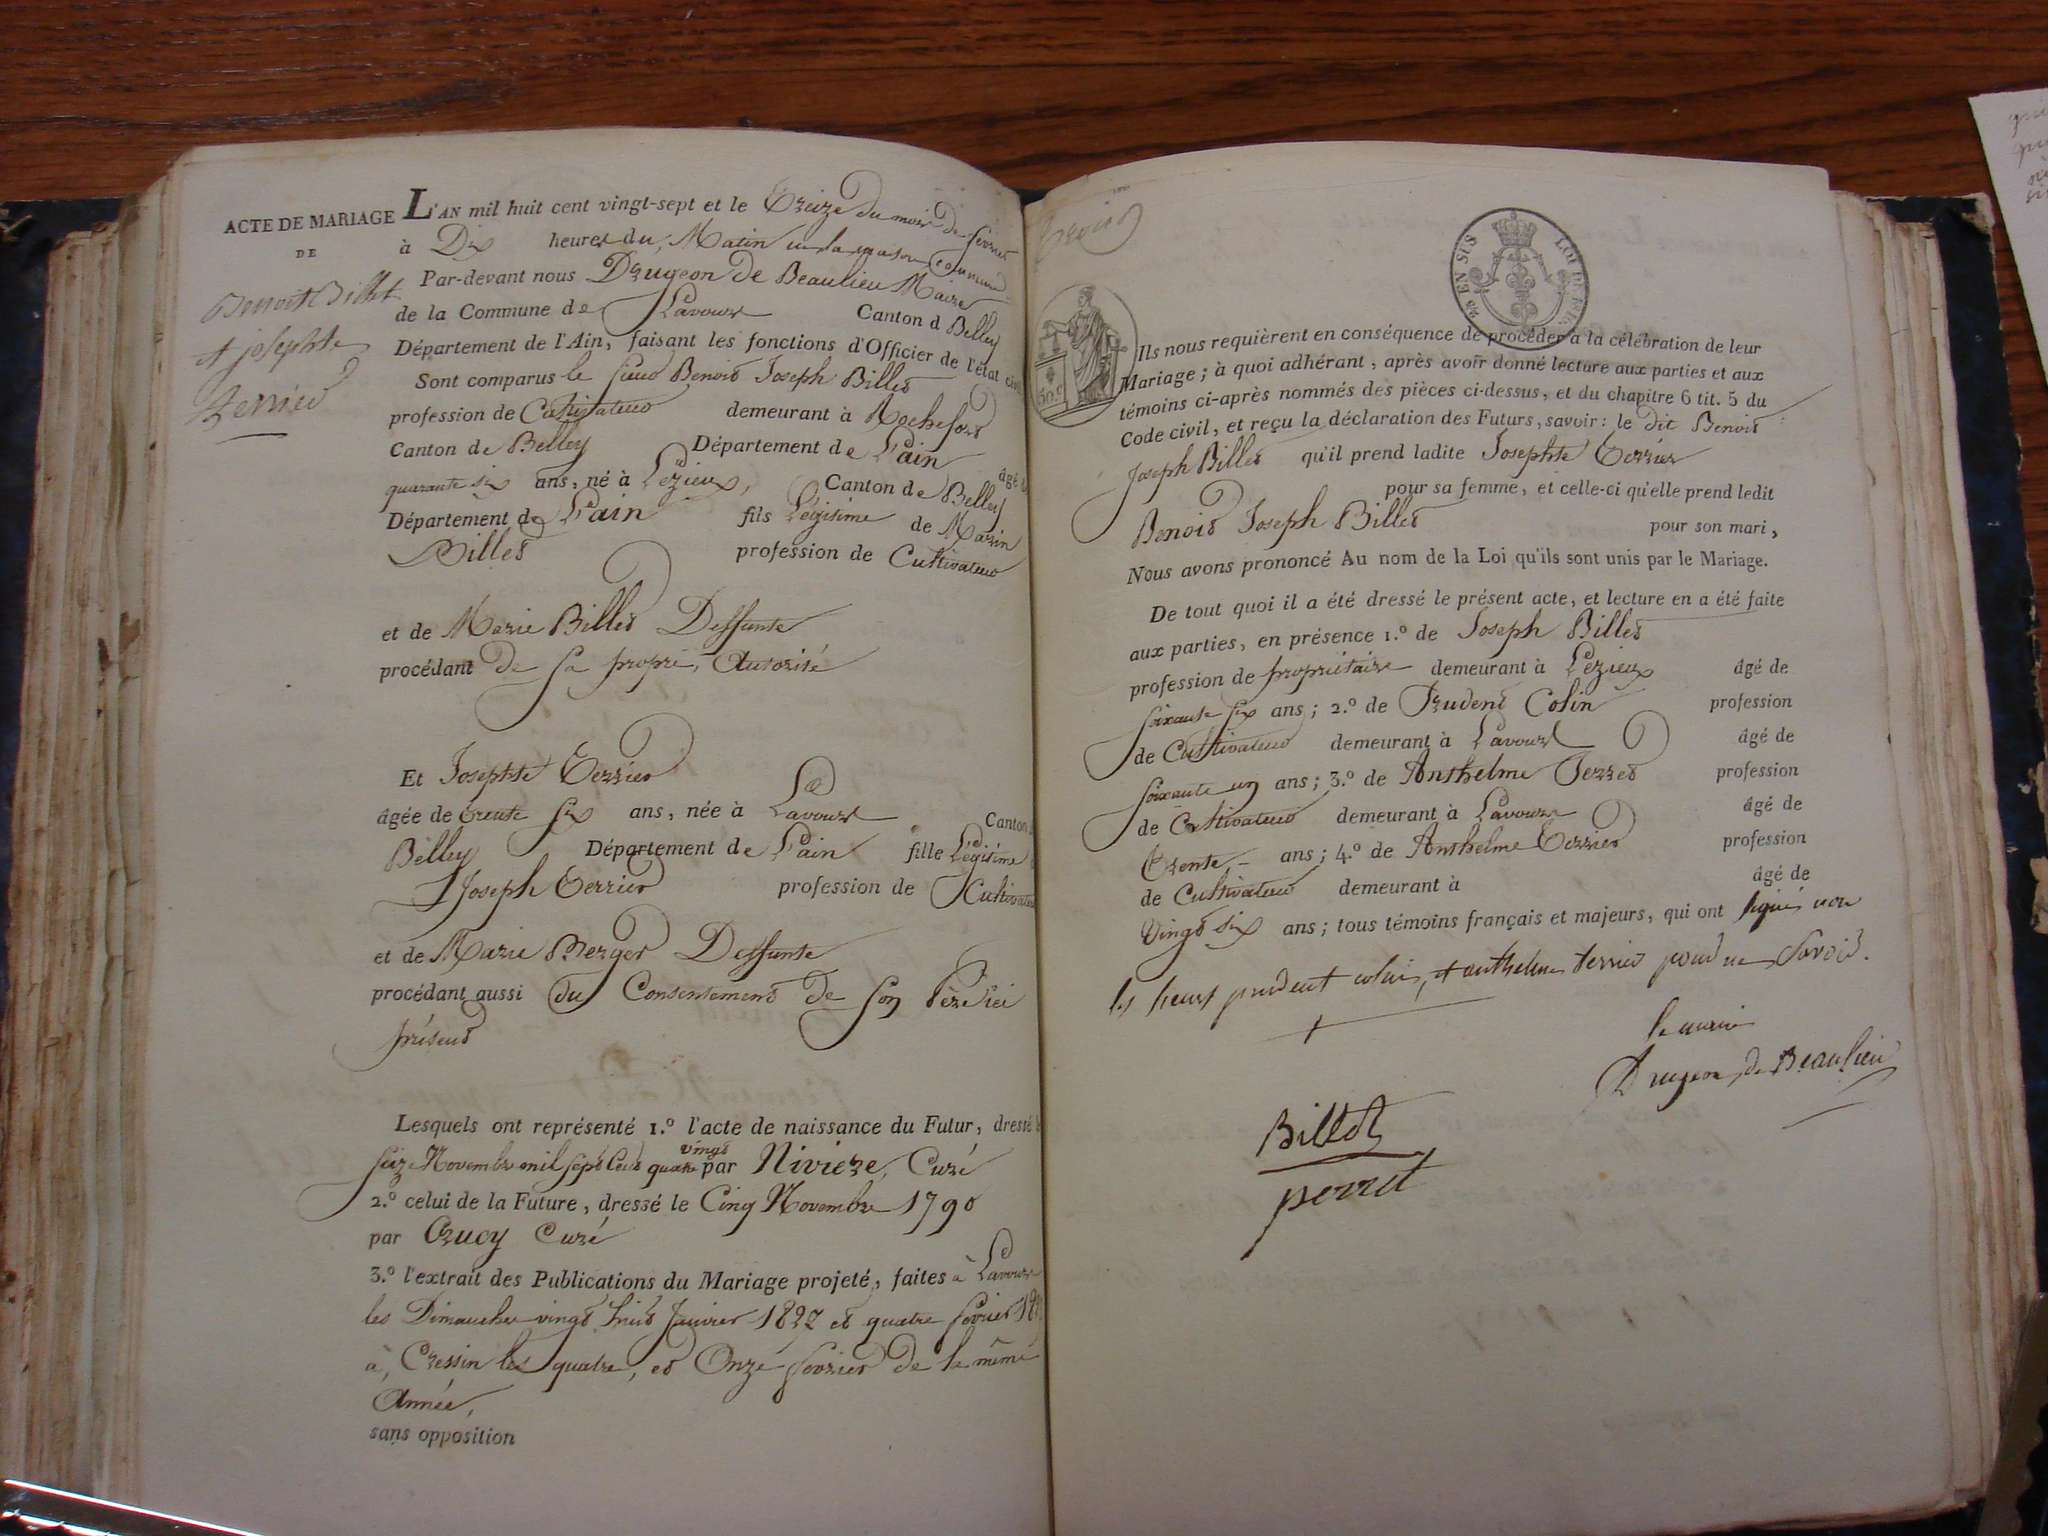 ACTE DE MARIAGE
DE
Benoit Billet
et josephte
terrier
L'AN mil huit cent vingt-sept et le Treize du mois de fevrier
à Dix heures du Matin en la maison commune
Par-devant nous Drugeon de Beaulieu Maire
de la Commune de Lavours Canton d Belley
Département de l'Ain, faisant les fonctions d'Officier de l'état civil
Sont comparus le sieur Benoit Joseph Billet
profession de Cultivateur demeurant à Rochefort
Canton de Belley Département de L'ain âgé de
quarante six ans, né à Lézieux, Canton de Belley
Département de L'ain fils Légitime de Marin
Billet profession de Cultivateur
et de Marie Billet Deffunte
procédant de sa propre Autorité
Et Josephte Terrier
âgée de trente six ans, née à Lavours Canton
Belley Département de L'ain fille Légitime
Joseph Terrier profession de Cultivateur
et de Marie Berger Deffunte
procédant aussi du Consentement de son Père ici
présent
Lesquels ont représenté 1.º l'acte de naissance du Futur, dressé le
seize Novembre mil sept Cent quatre vingt par Nivière, Curé
2.º celui de la Future, dressé le Cinq Novembre 1790
par Crucy Curé
3.º l'extrait des Publications du Mariage projeté, faites à Lavours
les Dimanches vingt huit Janvier 1827 et quatre fevrier
à Cressin les quatre, et Onze fevrier de la même
Année,
sans opposition
LOI DE
Ils nous requièrent en conséquence de procéder à la célébration de leur
Mariage; à quoi adhérant, après avoir donné lecture aux parties et aux
témoins ci-après nommés des pièces ci-dessus, et du chapitre 6 tit. 5 du
Code civil, et reçu la déclaration des Futurs, savoir: le dit Benoit
Joseph Billet qu'il prend ladite Josephte Terrier
pour sa femme, et celle-ci qu'elle prend ledit
Benoit Joseph Billet pour son mari,
Nous avons prononcé Au nom de la Loi qu'ils sont unis par le Mariage.
De tout quoi il a été dressé le présent acte, et lecture en a été faite
aux parties, en présence 1.º de Joseph Billet
profession de propriétaire demeurant à Lézieux âgé de
soixante six ans; 2.º de Prudent Colin profession
de Cultivateur demeurant à Lavours âgé de
soixante un ans; 3.º de Anthelme Perret profession
de Cultivateur demeurant à Lavours âgé de
trente ans; 4.º de Anthelme Terrier profession
de Cultivateur demeurant à âgé de
Vingt six ans; tous témoins français et majeurs, qui ont signés non
les sieurs prudent colin, et anthelme terrier pour ne savoir.
le maire
Drugeon de Beaulieu
Billet
perret